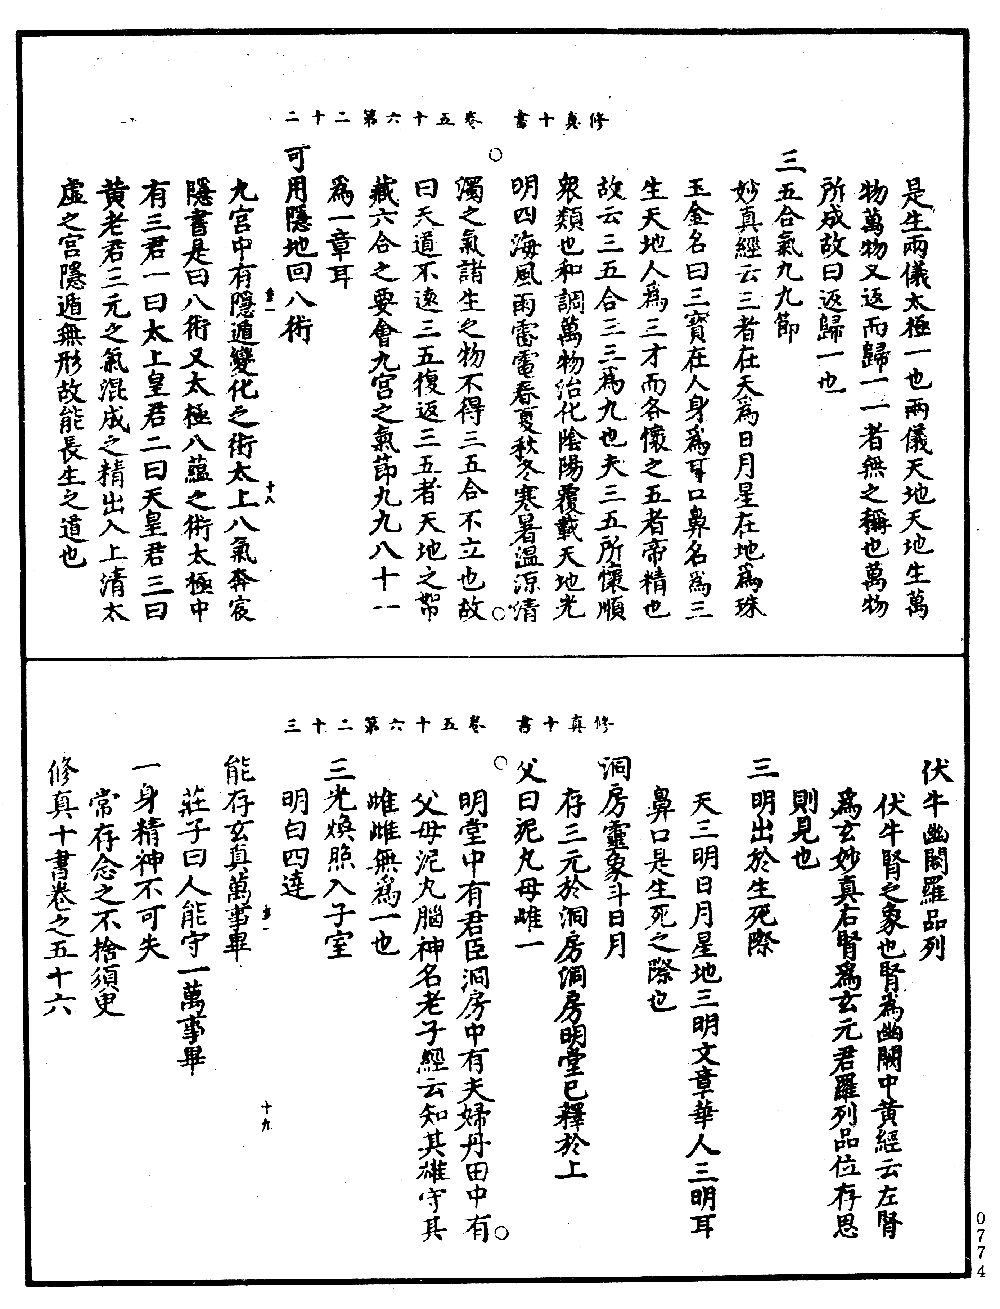 修真十書　卷五十六第二十二　一
是生兩儀太極一也兩儀天地天地生萬
物萬物又返而歸一一者無之稱也萬物
所成故曰返歸一也
三五合氣九九節
妙真經云三者在天爲日月星在地爲珠
玉金名曰三寶在人身爲耳口鼻名爲三
生天地人爲三才而各懷之五者帝精也
故云三五合三三爲九也夫三五所懷順
衆類也和調萬物治化陰陽覆載天地光
明四海風雨雷電春夏秋冬寒暑溫涼清
濁之氣諸生之物不得三五合不立也故
曰天道不遠三五復返三五者天地之帶
藏六合之要會九宮之氣節九九八十一
爲一章耳
可用隱地回八術
九宮中有隱遁變化之術太上八氣奔宸
隱書是曰八術又太極八蘊之術太極中
有三君一曰太上皇君二曰天皇君三曰
黃老君三元之氣混成之精出入上清太
虛之宮隱遁無形故能長生之道也
十八
修真十書　卷五十六第二十三
伏牛幽闕羅品列
伏牛腎之象也腎爲幽闕中黃經云左腎
爲玄妙真右腎爲玄元君羅列品位存思
則見也
三明出於生死際
天三明日月星地三明文章華人三明耳
鼻口是生死之際也
洞房靈象斗日月
存三元於洞房洞房明堂已釋於上
父曰泥丸母雌一
明堂中有君臣洞房中有夫婦丹田中有
父母泥丸腦神名老子經云知其雄守其
雌雌無爲一也
三光煥照入子室
明白四達
能存玄真萬事畢
莊子曰人能守一萬事畢
一身精神不可失
常存念之不捨須臾
修真十書卷之五十六
十九
0774